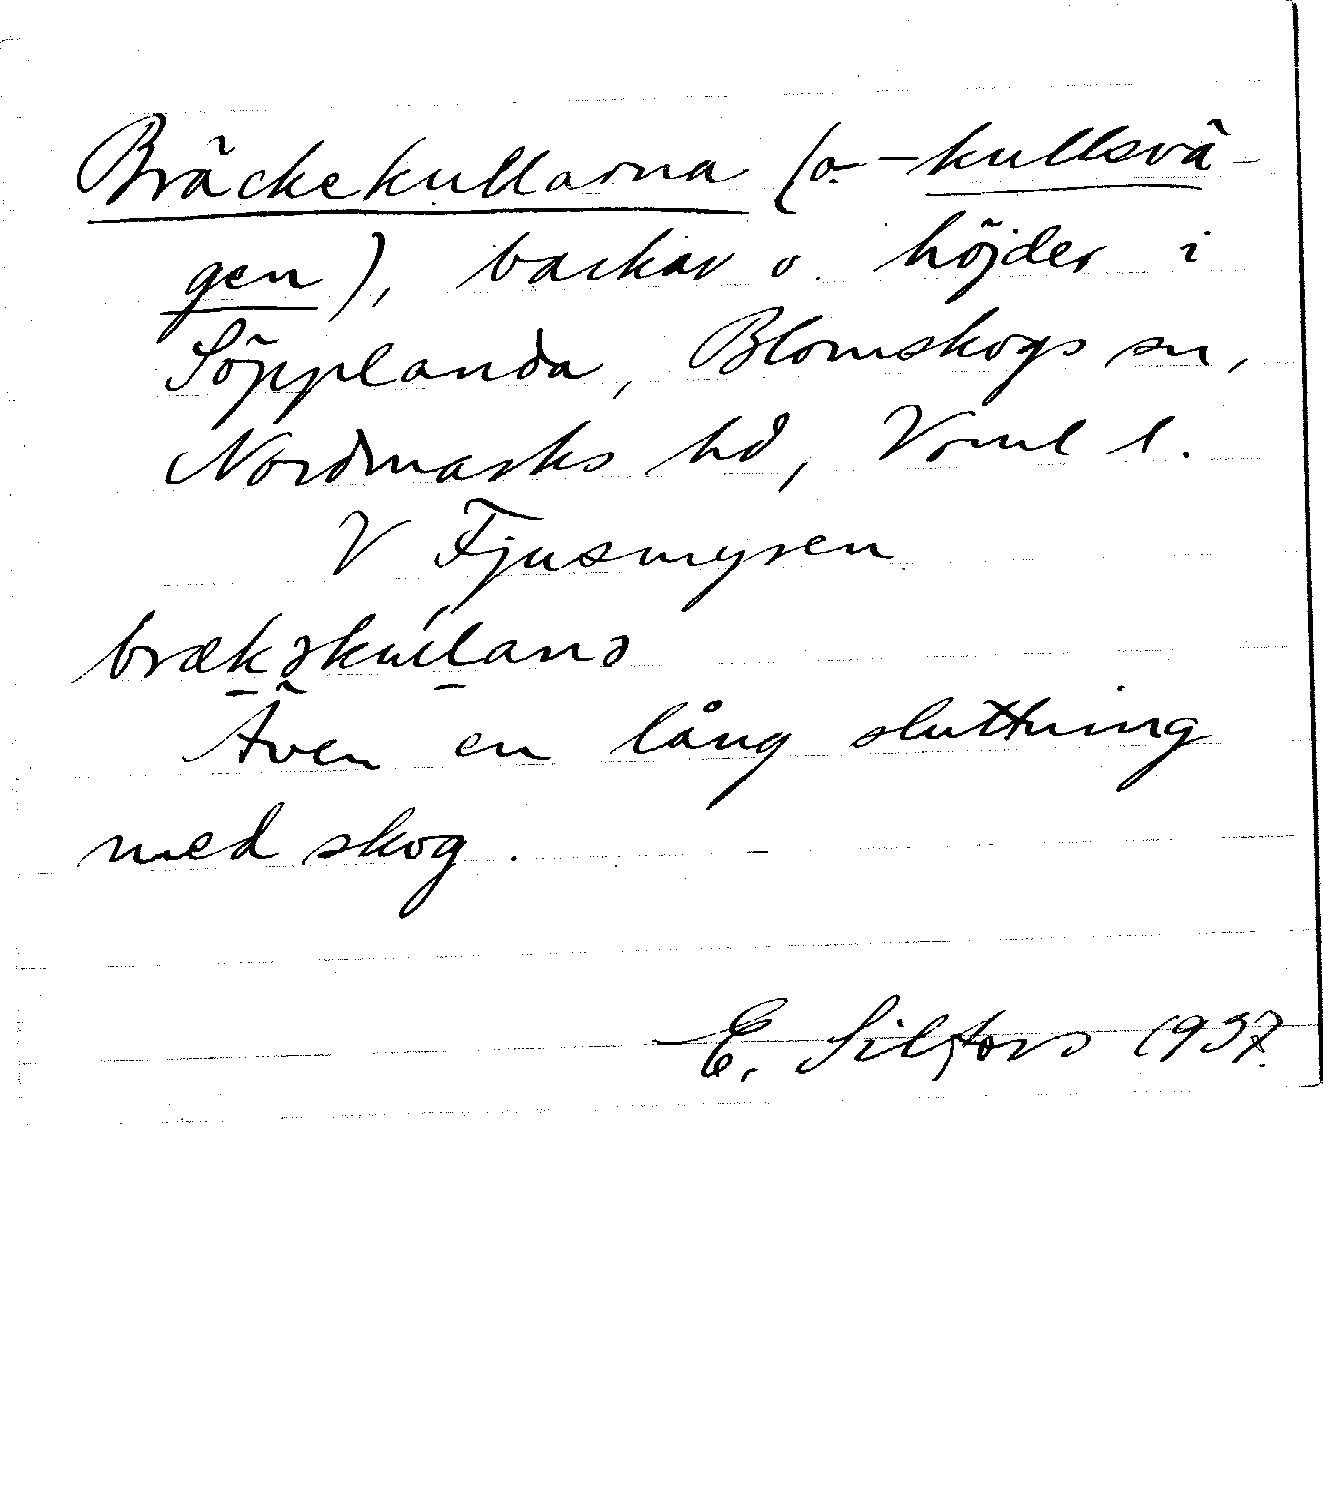 Bräckekullarna (o. -kullsvä-
gen), backar o. höjder i
Söpplanda, Blomskogs sn,
Nordmarks hd, Vrml l.
V Fjusmyren
brækəkullanə
Även en lång sluttning
med skog.
E. Silfors 1937.